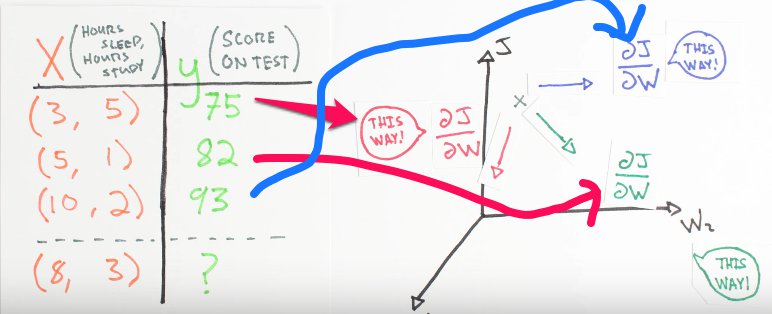 X (HOURS
SLEEP,
HOURS
STUDY)
y (SCORE
ON TEST)
(3, 5) 75
(5, 1) 82
(10, 2) 93
(8, 3) ?
J
THIS
WAY!
∂J
∂W
∂J
∂W
THIS
WAY!
x
∂J
∂W
W₂
THIS
WAY!